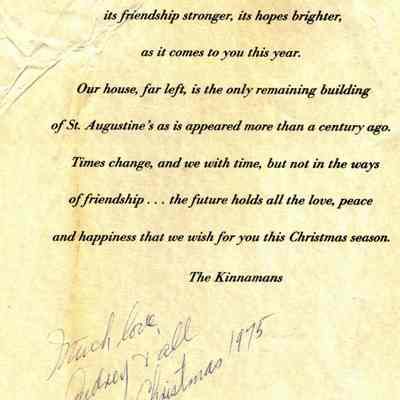 its friendship stronger, its hopes brighter,
as it comes to you this year.
Our house, far left, is the only remaining building
of St. Augustine's as is appeared more than a century ago.
Times change, and we with time, but not in the ways
of friendship . . . the future holds all the love, peace
and happiness that we wish for you this Christmas season.
The Kinnamans
Much love,
Audrey & all
Christmas 1975